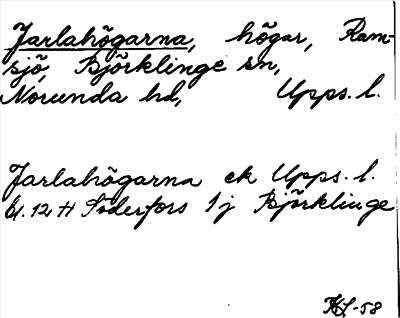 Jarlahögarna, högar, Ram-
sjö, Björklinge sn,
Norunda hd, Upps. l.
Jarlahögarna ek Upps. l.
bl. 12 H Söderfors 1j Björklinge
-58